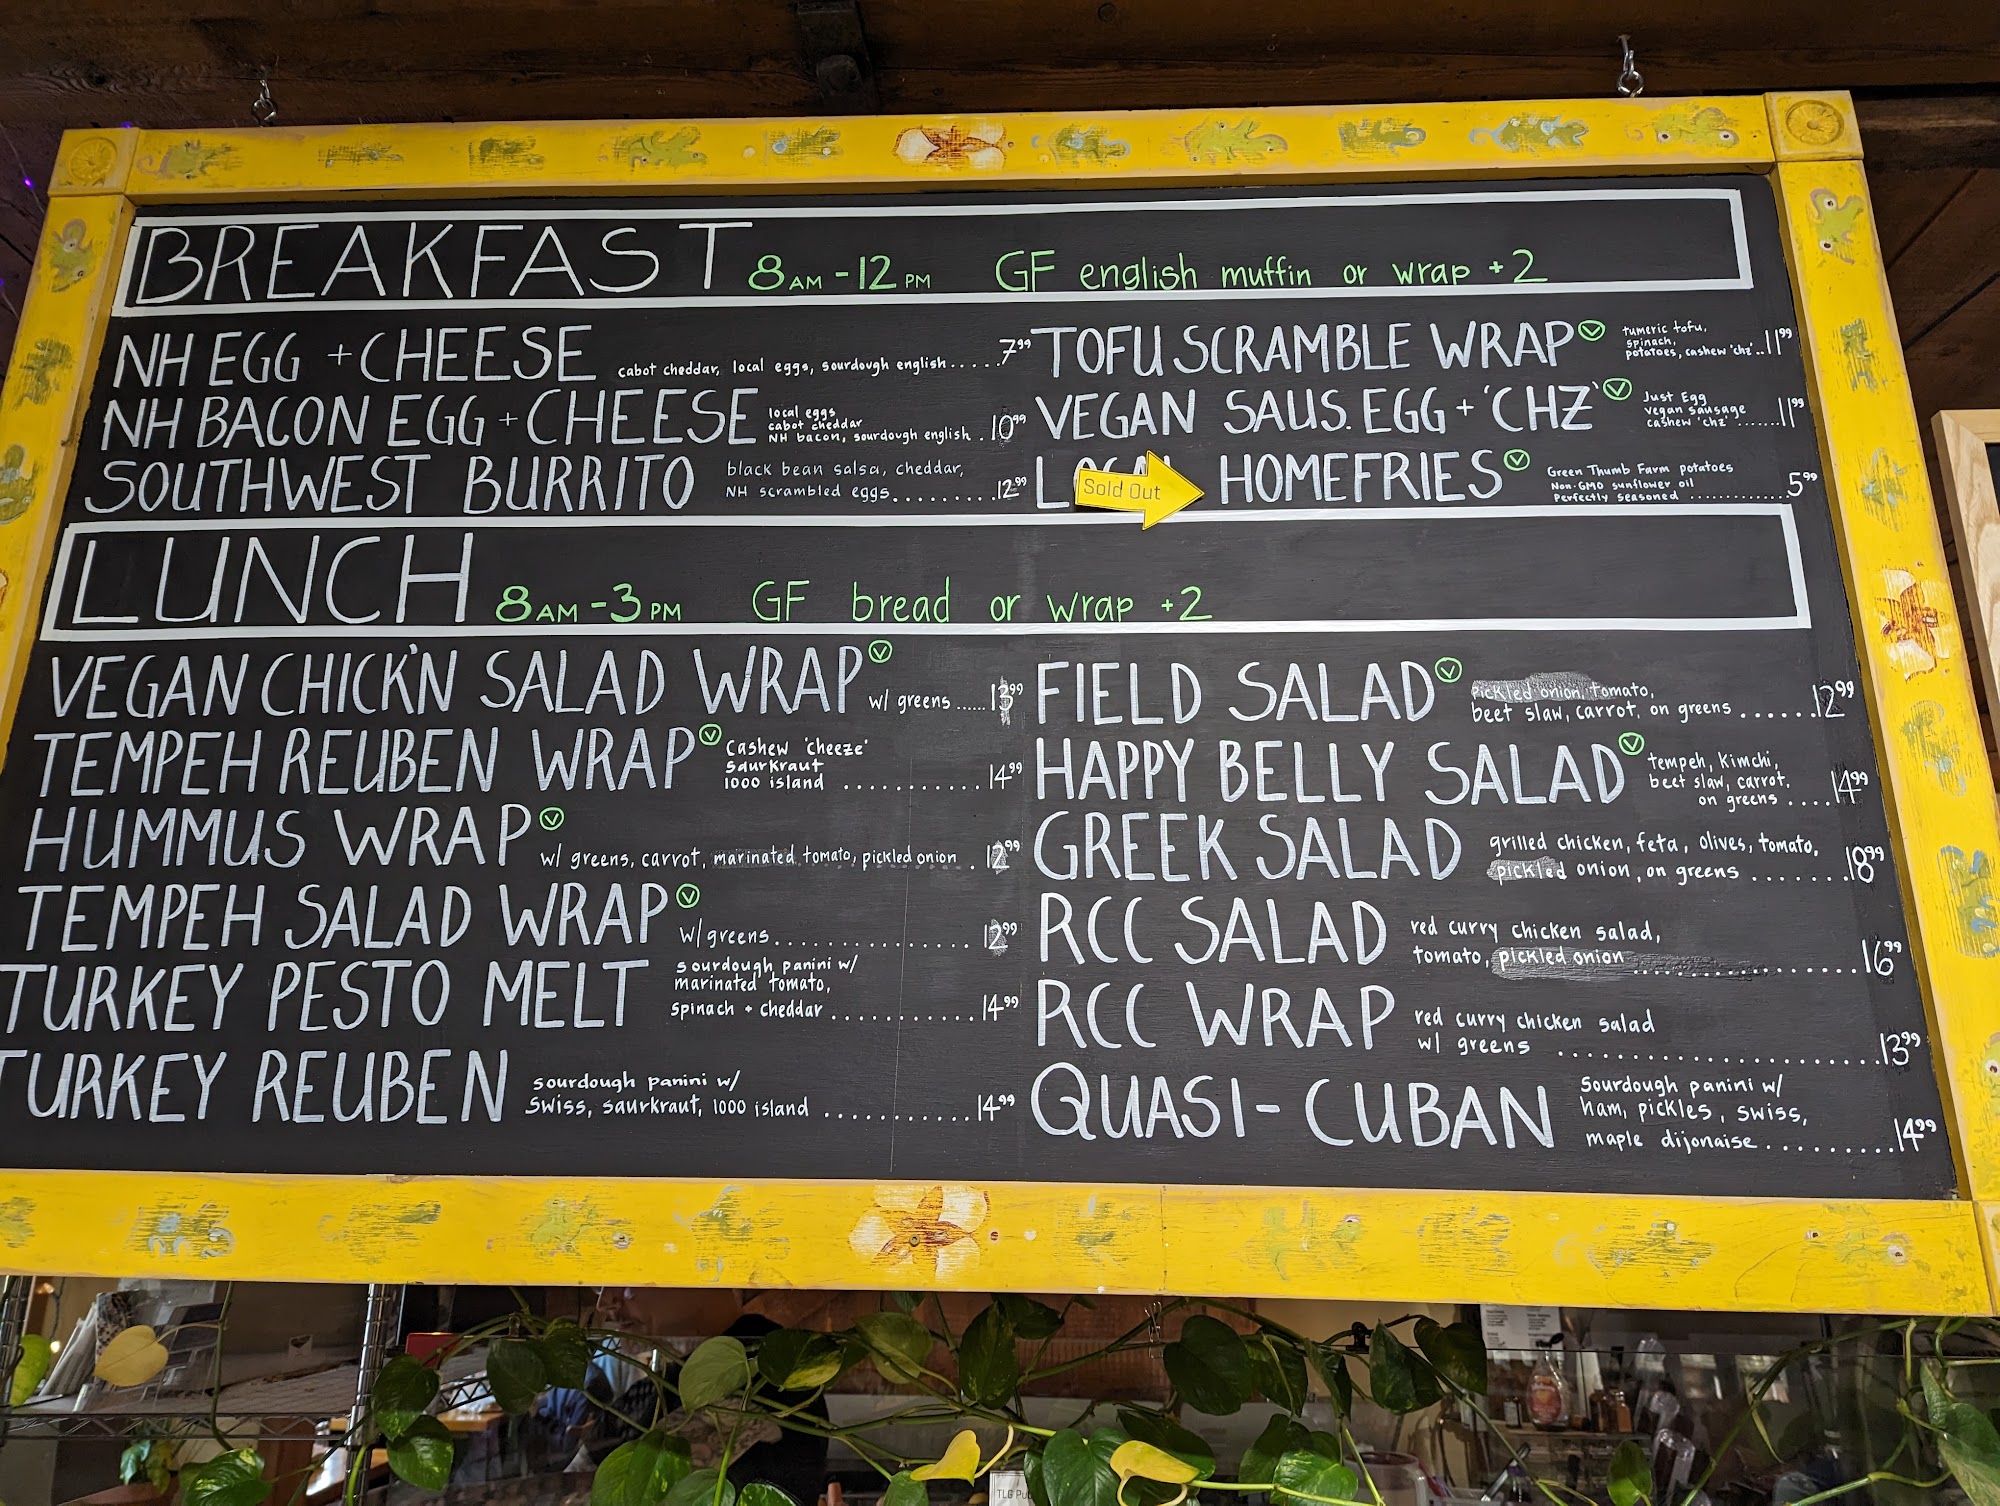 BREAKFAST 8AM-12PM GF english muffin or wrap +2
NH EGG + CHEESE cabot cheddar, local eggs, sourdough english.....7.99
NH BACON EGG + CHEESE local eggs
cabot cheddar
NH bacon, sourdough english .10.99
SOUTHWEST BURRITO black bean salsa, cheddar,
NH scrambled eggs..........12.99
TOFU SCRAMBLE WRAP V tumeric tofu,
spinach,
potatoes, cashew 'chz'..11.99
VEGAN SAUS. EGG + 'CHZ' V Just Egg
vegan sausage
cashew 'chz'.......11.99
LOCAL HOMEFRIES V Green Thumb Farm potatoes
Non-GMO sunflower oil
Perfectly seasoned ..............5.99
Sold Out
LUNCH 8AM-3PM GF bread or wrap +2
VEGAN CHICK'N SALAD WRAP V w/ greens......13.99
TEMPEH REUBEN WRAP V Cashew 'cheeze'
saurkraut
1000 island ............14.99
HUMMUS WRAP V
w/ greens, carrot, marinated tomato, pickled onion .12.99
TEMPEH SALAD WRAP V
w/greens..................12.99
TURKEY PESTO MELT sourdough panini w/
marinated tomato,
spinach + cheddar............14.99
TURKEY REUBEN sourdough panini w/
Swiss, saurkraut, 1000 island ............14.99
FIELD SALAD V pickled onion, tomato,
beet slaw, carrot, on greens ......12.99
HAPPY BELLY SALAD V tempeh, Kimchi,
beet slaw, carrot,
on greens ....14.99
GREEK SALAD grilled chicken, feta, olives, tomato,
pickled onion, on greens .......18.99
RCC SALAD red curry chicken salad,
tomato, pickled onion ....................16.99
RCC WRAP red curry chicken salad
w/ greens .........................13.99
QUASI-CUBAN Sourdough panini w/
ham, pickles, swiss,
maple dijonaise..........14.99